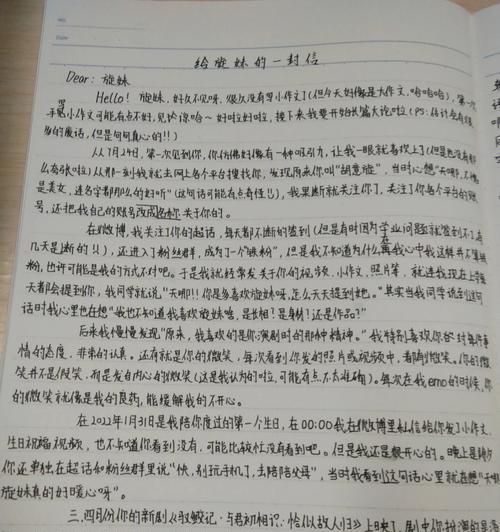 给旋妹的一封信
Dear：旋妹
Hello！旋妹，好久不见呀，很久没有写小作文了(但今天好像是大作文，哈哈哈)，第一次
写
手写小作文可能有点不好，见谅哈～好啦好啦，接下来我要开始长篇大论啦(PS：估计会有很
多的废话，但是句句真心的!!)
从7月24日，第一次见到你，你仿佛好像有一种吸引力，让我一眼就喜欢上了(但是也没有那
么夸张啦)从那一刻我就去网上各个平台搜找你，发现原来你叫"胡意旋"，当时心想"天哪，不愧
是美女，连名字都那么的好听"(这句话可能有点奇怪!!)，我果断就关注你了，关注了你各个平台的账
号，还把我自己的账号改成名称关于你的。
在微博，我关注了你的超话，每天都不断的签到(但是有时因为学业问题就签到不了，有
几天是断的!!)，还进入了粉丝群，成为了一个"旋粉"，但是我不知道为什么在我心中我这好并不算旋
粉，也许可能是我的方式不对吧。于是我就经常发关于你的视频、小作文、照片等，就连我现在上学每
天都会提到你，我同学就说"天哪!!你是多喜欢旋妹呀，怎么天天提到她。"其实当我同学说到这句
话时我心里也在想"我也不知道我喜欢旋妹啥，是长相？是身材？还是作品？"
后来我慢慢发现"原来，我喜欢的是你演剧时的那种精神。"我特别喜欢你的对每件事
情的态度，非常的认真。还有就是你的微笑，每次看到你发的照片或视频中，看到微笑。你的微
笑并不是假笑，而是发自内心的微笑(这是我认为的啦，可能有点不太准确)。每次在我emo的时候，你
的微笑就像是我的良药，能缓解我的不开心。
在2022年1月31日是我陪你度过的第一个生日，在00:00我在微博里私信给你发了小作文、
生日祝福视频，也不知道你看到没有，可能比较忙没有看到吧。但是我还是很开心的。晚上是除夕
你还单独在超话和粉丝群里说"快，别玩手机了，去陪陪父母"，当时我看到这句话心里就在想"天哪
旋妹真的好暖心呀"。
三、四月份你的新剧《驭鲛记·与君初相识·恰似故人归》上映了，剧中你扮演的